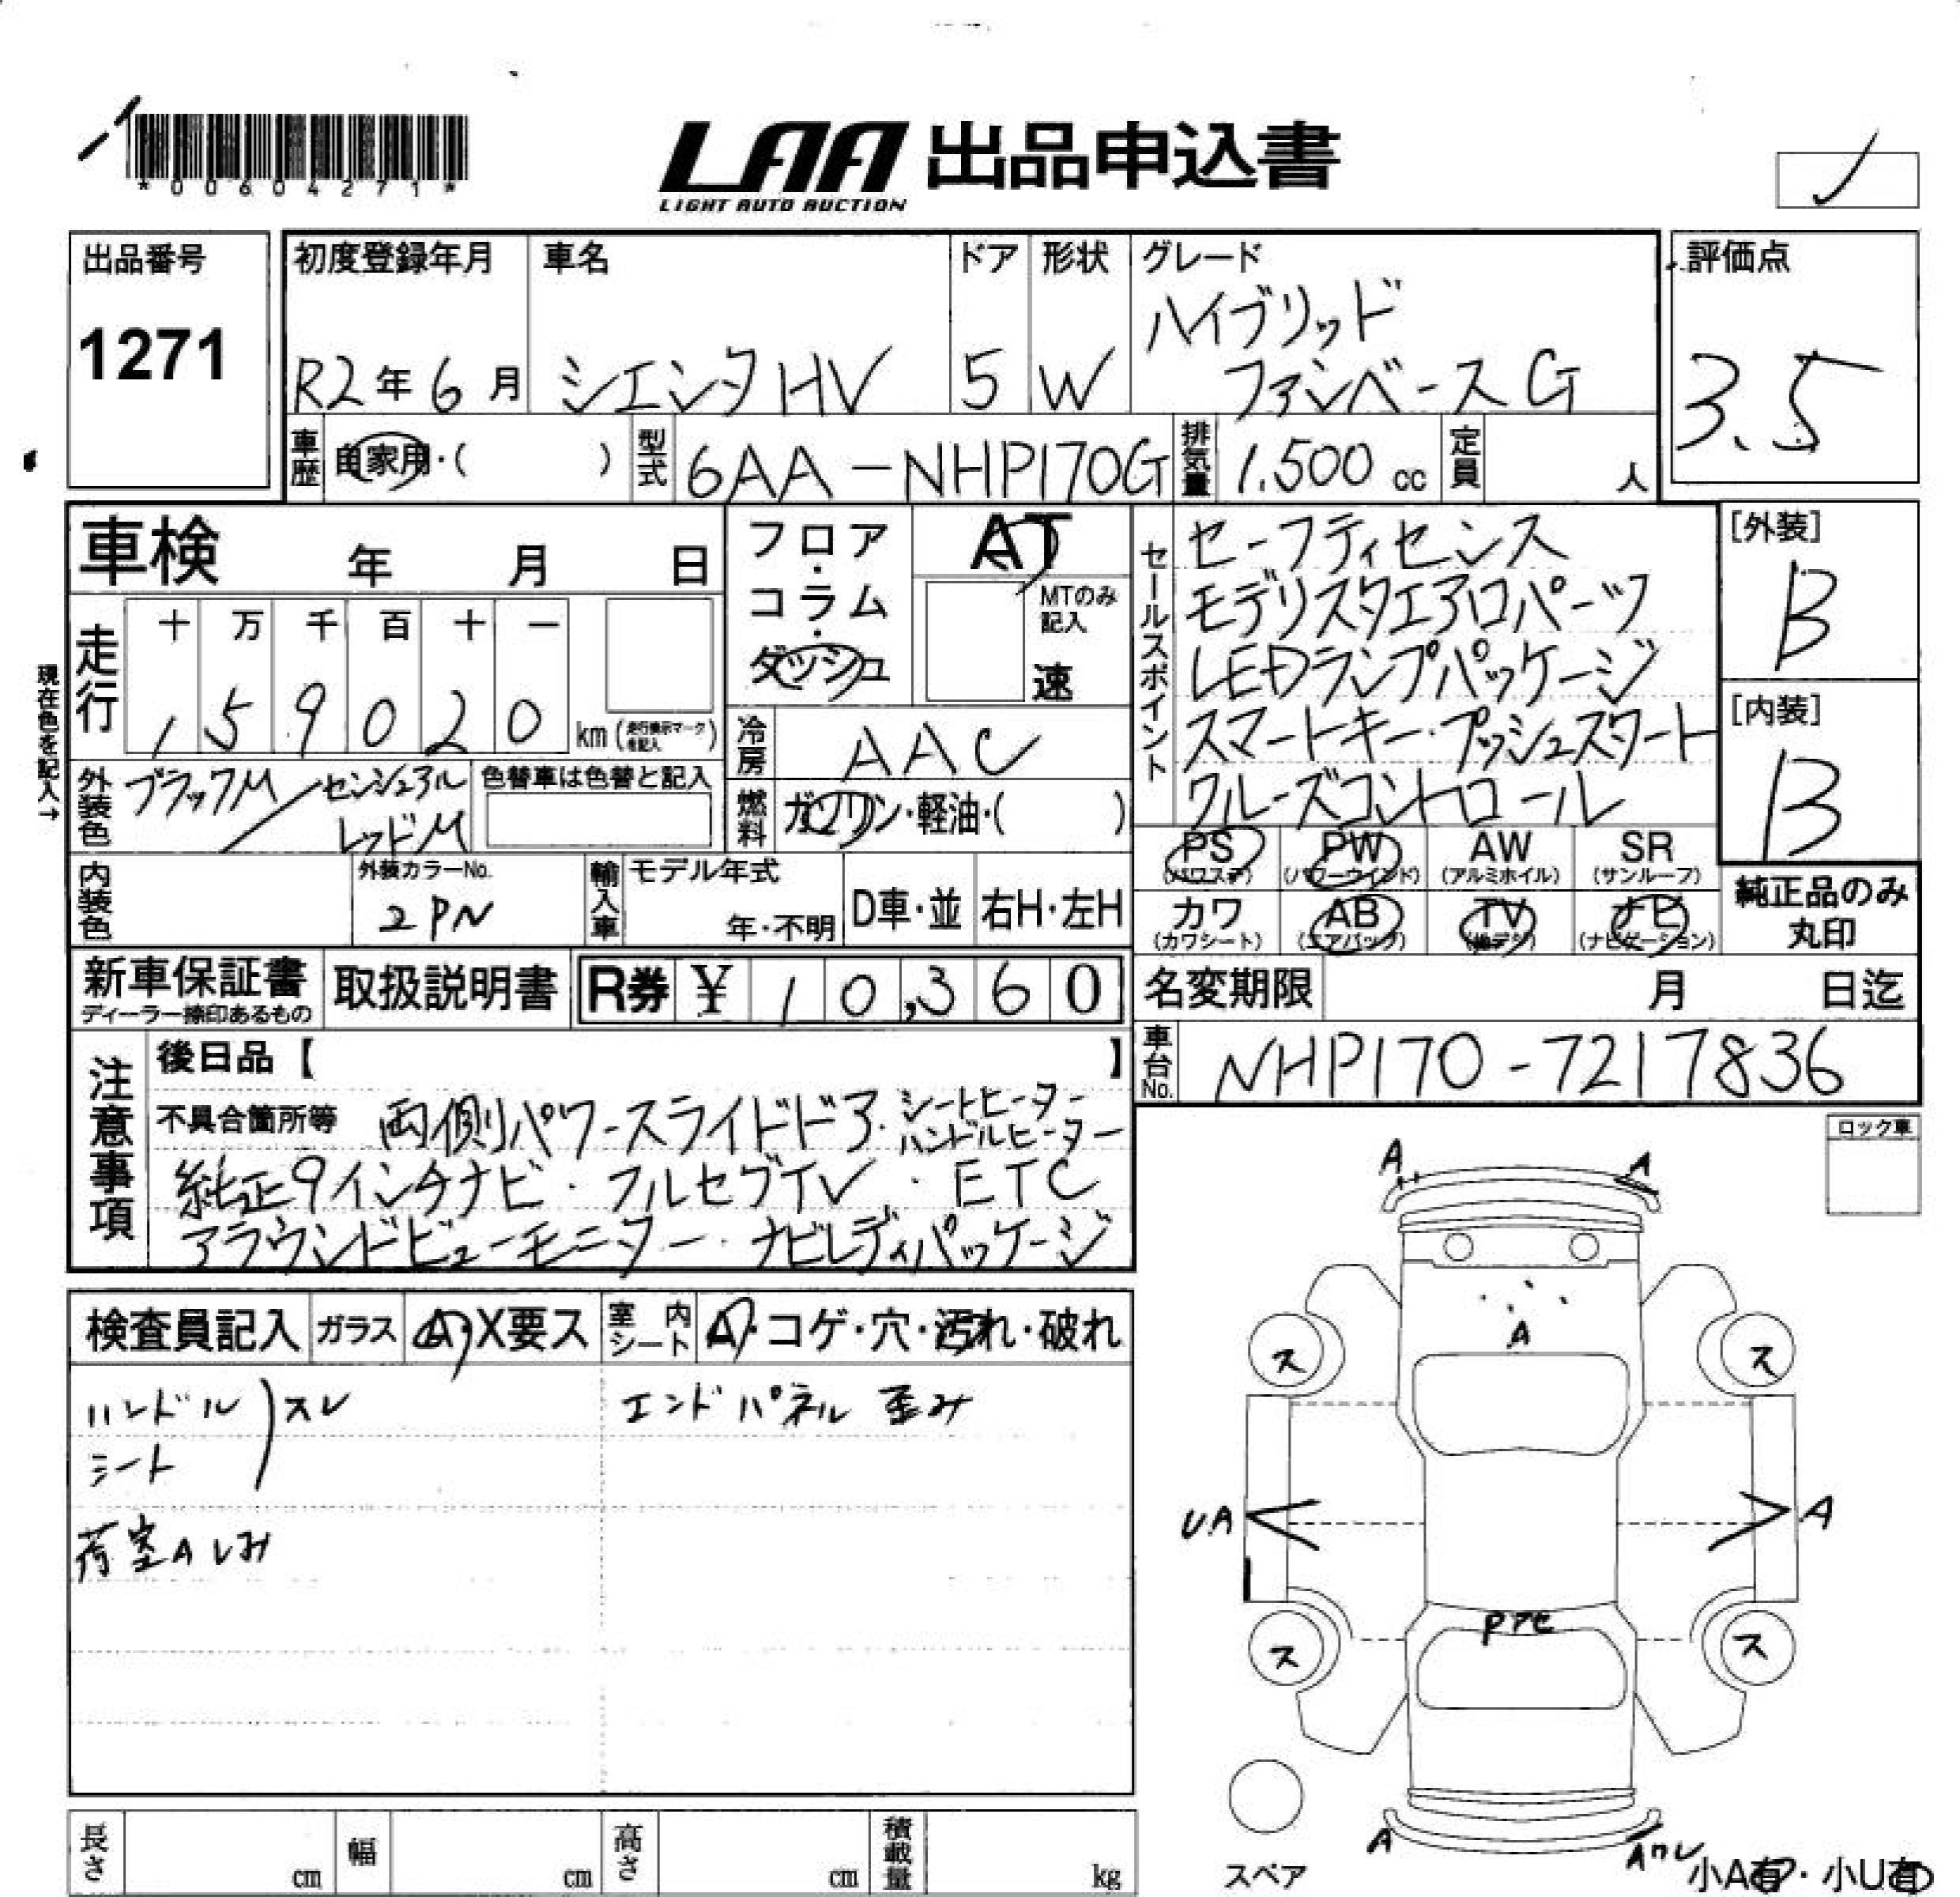 *00604271*
LAA 出品申込書
LIGHT AUTO AUCTION
出品番号
1271
初度登録年月
R2年6月
車名
シエンタHV
ドア
5
形状
W
グレード
ハイブリッド
ファンベースG
評価点
3.5
車歴 自家用・( )
型式 6AA-NHP170G
排気量 1.500 cc
定員 人
車検 年 月 日
走行
十 万 千 百 十 一
1 5 9 0 2 0 km (走行表示マークを記入)
現在色を記入→
フロア・コラム・ダッシュ
AT
MTのみ記入
速
冷房 AAC
燃料 ガソリン・軽油・( )
外装色 ブラックM/センシュアルレッドM
色替車は色替と記入
内装色
外装カラーNo.
2PN
輸入車
モデル年式
年・不明
D車・並
右H・左H
セールスポイント
セーフティセンス
モデリスタエアロパーツ
LEDランプパッケージ
スマートキー・プッシュスタート
クルーズコントロール
[外装]
B
[内装]
B
PS PW AW SR
(パワステ) (パワーウインド) (アルミホイル) (サンルーフ)
カワ AB TV ナビ
(カワシート) (エアバッグ) (ナビゲーション)
純正品のみ
丸印
新車保証書
ディーラー捺印あるもの
取扱説明書
R券 ¥ 10,360
名変期限 月 日迄
車台No. NHP170-7217836
注意事項
後日品【 】
不具合箇所等 両側パワースライドドア・シートヒーター
ハンドルヒーター
純正9インチナビ・フルセグTV・ETC
アラウンドビューモニター・ナビレディパッケージ
ロック車
検査員記入 ガラス A・X要ス 室内シート A・コゲ・穴・汚れ・破れ
ハンドル
シート
スレ
荷室Aしみ
エンドパネル 歪み
A A
A
ス ス
UA A
Pアセ
ス ス
A Aワレ
スペア
小A有・小U有
長さ cm
幅 cm
高さ cm
積載量 kg